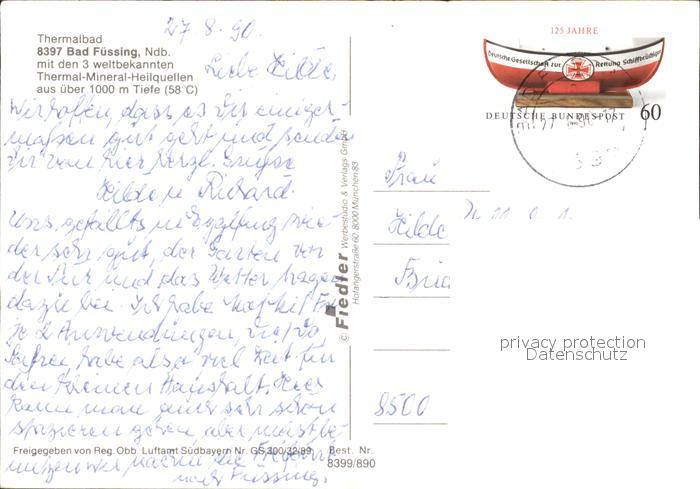 Thermalbad
8397 Bad Füssing, Ndb.
mit den 3 weltbekannten
Thermal-Mineral-Heilquellen
aus über 1000 m Tiefe (58°C)
27.8.90.
Liebe Hilde,
Wir hoffen, dass es Dir einiger-
maßen gut geht und senden
Dir von hier herzl. Grüße
Hilde u. Richard.
Uns gefällts in Egglfing wie-
der sehr gut, der Garten vor
der Tür und das Wetter tragen
dazu bei. Ich habe
je 2 Anwendungen,
habe also viel Zeit für
den kleinen Haushalt. Hier
kann man auch sehr schön
spazieren gehen, aber meist be-
nützen wir
nach Füssing.
Freigegeben von Reg. Obb. Luftamt Südbayern Nr. GS 300/32/89
Best. Nr.
8399/890
© Fiedler Werbestudio & Verlags GmbH
Hofangerstraße 60 8000 München 83
125 JAHRE
Deutsche Gesellschaft zur Rettung Schiffbrüchiger
DEUTSCHE BUNDESPOST 60
Frau
Hilde
8500
privacy protection
Datenschutz